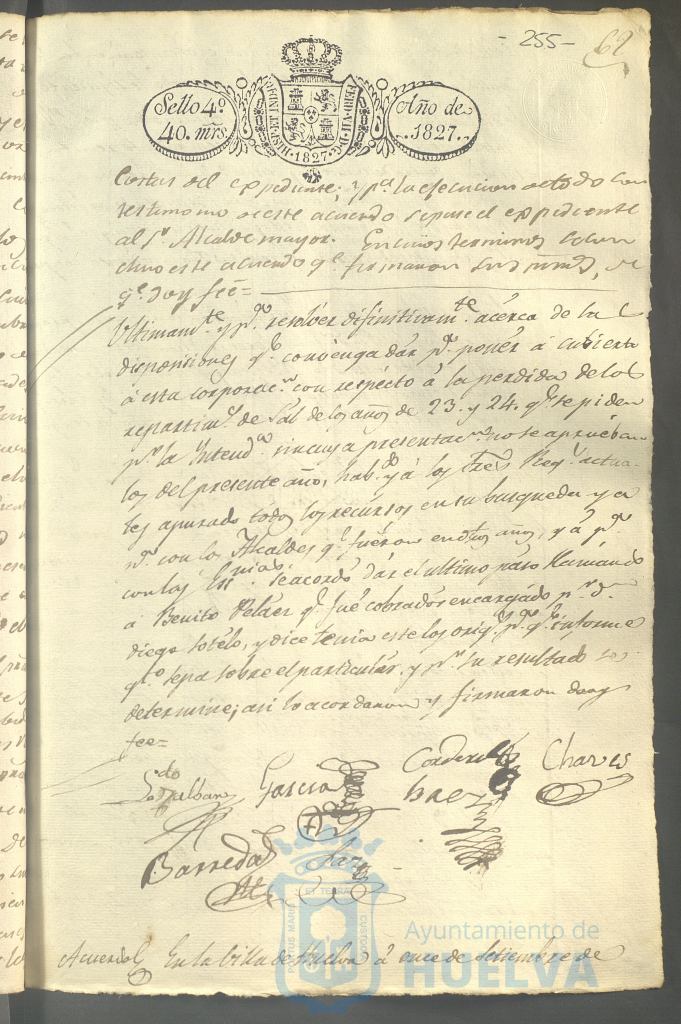 - 255 -
62
Sello 4º
40. mrs.
HISP. ET IND. R. 1827. FERD. VII. D. G.
Año de
1827.
Costas del expediente; y pª la ejecucion de todo con
testimonio de este acuerdo se pase el expediente
al Sr. Alcalde mayor. En cuios terminos se con
cluio este acuerdo qe. firmaron sus mrds, de
qe. doy fee =
Ultimamte. y pª. resolver difinitivamte. acerca de las
disposiciones qe. convenga dar pª. poner á cubierto
á esta corporacn. con respecto á la perdida de los
repartims. de Sal de los años de 23. y 24. qe. se piden
pr. la Intenda. sin cuya presentacn. no se aprueban
los del presente año, habdo. ya los tres Regs. actua
les apurado todos los recursos en su busqueda ya
con los Alcaldes qe. fueron en dhos años, y á
con los se acordó dar el ultimo paso llamando
a Benito Pelaez qe. fué cobrador encargado pr. Dn.
Diego Sotelo, y dice tenia este los orig. pª. qe. informe
qto. sepa sobre el particular. y pr. su resultado se
determine; asi lo acordaron y firmaron doy
fee =
Ldo. Garcia Cordero Chaves
Baez
Barreda
PORTUS MARIS ET TERRAE CUSTODIA
Ayuntamiento de
HUELVA
Acuerdo En la Villa de Huelva á once de Setiembre de